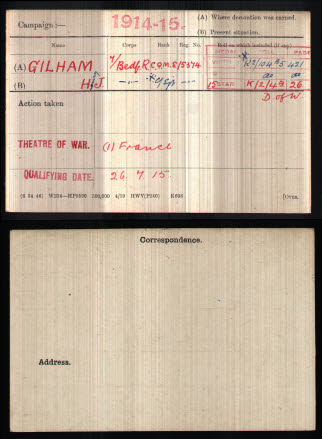 Campaign :— 1914-15. (A) Where decoration was earned.
(B) Present situation.
Name Corps Rank Reg. No. Roll on which included (if any)
MEDAL ROLL PAGE
(A) GILHAM 7/Bedf. R. C.Q.M.S. 15674 VICTORY K/2/104 B5 421
(B) H. J. —"— * a/Sjt —"— do do
15 STAR K/2/4B 26
Action taken D. of W.
THEATRE OF WAR. (1) France
QUALIFYING DATE. 26. 7. 15
(6 34 46) W234—HP5590 500,000 4/19 HWV(P240) K608 [OVER.
Correspondence.
Address.